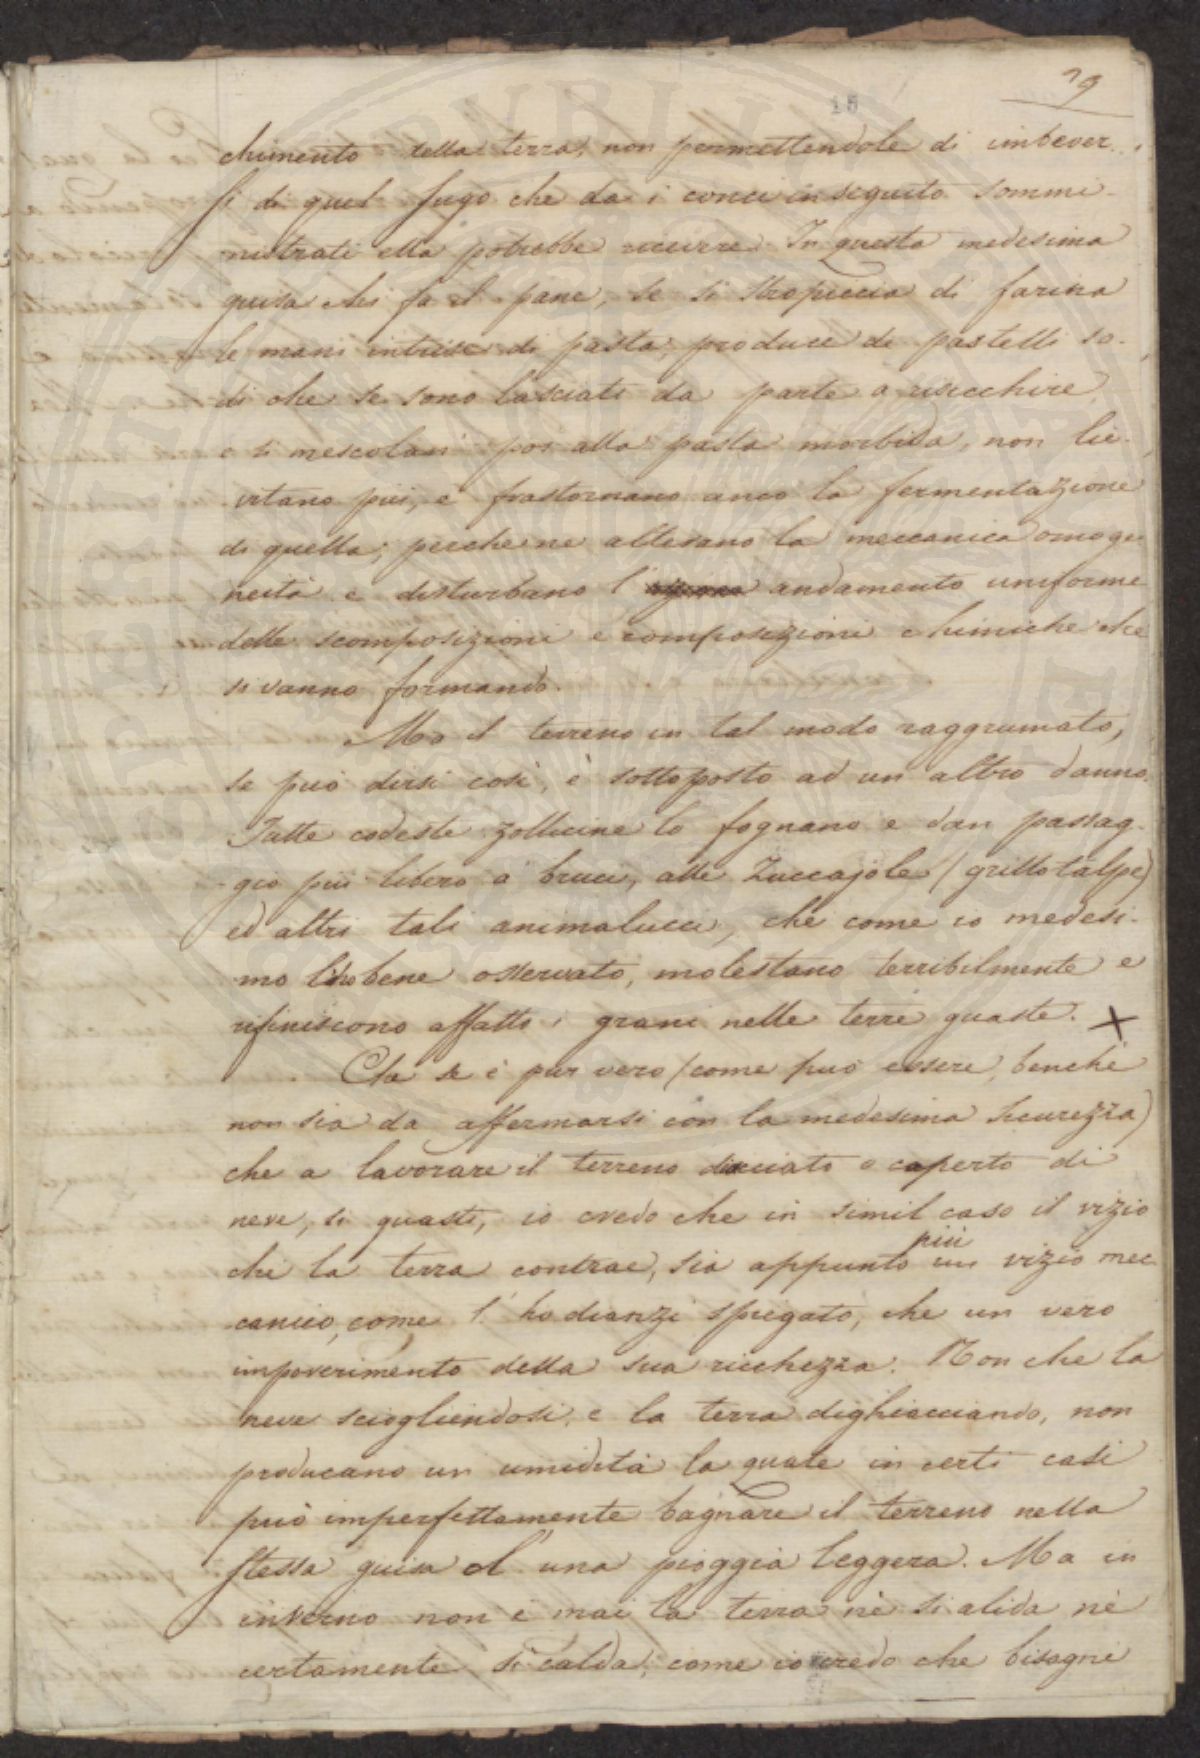 29
15
chimento della terra, non permettendole di imbever-
si di quel sugo che da i conci in seguito sommi-
nistrati ella potrebbe ricevere. In questa medesima
guisa chi fa il pane, se si stropiccia di farina
le mani intrise di pasta, produce de pastelli so-
di che se sono lasciati da parte a risecchire,
e si mescolan poi alla pasta morbida, non lie-
vitano più, e frastornano anco la fermentazione
di quella, perche ne alterano la meccanica omoge
neità e disturbano l' andamento uniforme
delle scomposizioni e composizioni chimiche che
si vanno formando.
Ma il terreno in tal modo raggrumato,
se può dirsi così, è sottoposto ad un altro danno.
Tutte codeste zollicine lo fognano e dan passag-
gio più libero a' bruci, alle Zuccajole (grillotalpe)
ed altri tali animalucci, che come io medesi-
mo l'ho bene osservato, molestano terribilmente e
rifiniscono affatto i grani nelle terre guaste. X
Che se è pur vero (come può essere, benchè
non sia da affermarsi con la medesima sicurezza)
che a lavorare il terreno diacciato o coperto di
neve, si guasti, io credo che in simil caso il vizio
che la terra contrae, sia appunto più un vizio mec-
canico, come l'ho dianzi spiegato, che un vero
impoverimento della sua ricchezza. Non che la
neve sciogliendosi, e la terra dighiacciando, non
producano un umidità la quale in certi casi
può imperfettamente bagnare il terreno nella
stessa guisa d' una pioggia leggera. Ma in
inverno non è mai la terra nè sì alida nè
certamente sì calda, come io credo che bisogni